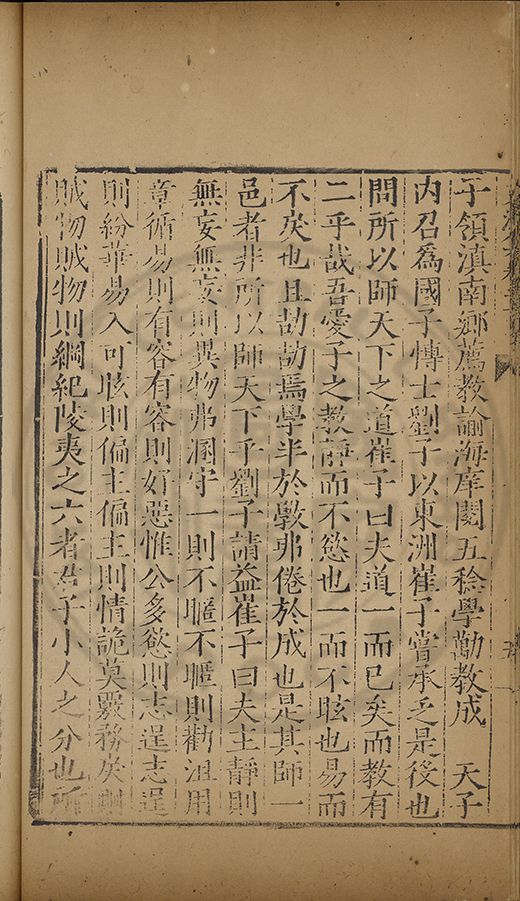 子領滇南鄉薦教諭海庠閱五稔學勤教成　天子
内召爲國子愽士劉子以東洲崔子嘗承乏是役也
問所以師天下之道崔子曰夫道一而已矣而教有
二乎哉吾愛子之教靜而不慾也一而不眩也易而
不矣也且劼劼焉學半於斆弗倦於成也是其師一
邑者非所以師天下乎劉子請益崔子曰夫主靜則
無妄無妄則異物弗溷守一則不暱不暱則勸沮用
章循易則有容有容則好惡惟公多慾則志逞志逞
則紛華易入可眩則偏主偏主則情詭莫覈務矣則
賊物賊物則綱紀陵夷之六者君子小人之分也所